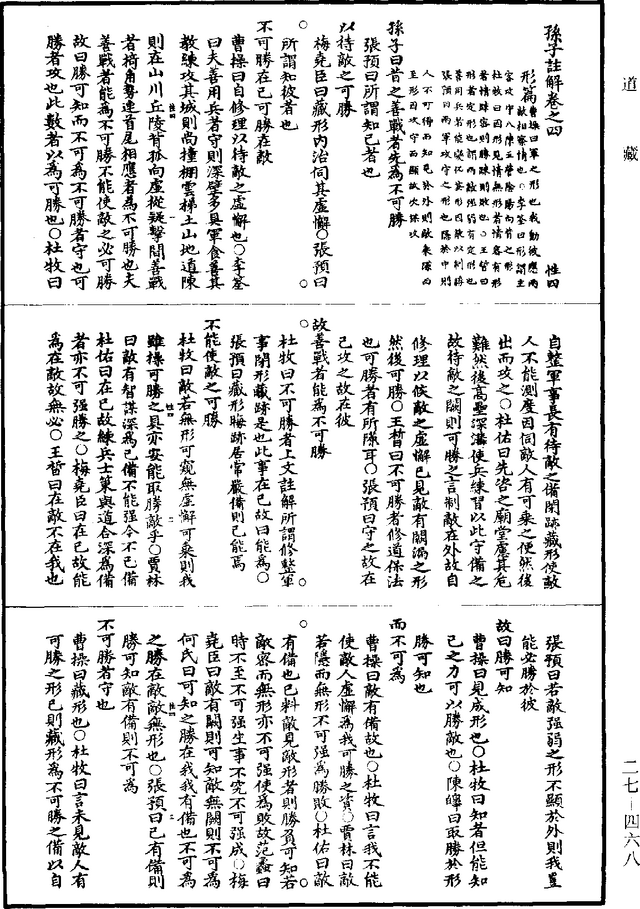 道藏
孫子註解卷之四 性四
形篇 曹操曰軍之形也我動彼應兩
敵相察情也○李筌曰形謂主
客攻守八陳五營陰陽向背之形
杜牧曰因形見情無形者情密有形
者情疎密則勝疎則敗也○王晳曰
形者定形也謂兩敵強弱有定形也
善用兵者能變化其形因敵以制勝
張預曰兩軍攻守之形也隱於中則
人不可得而知見於外則敵乘隙而
至形因攻守而顯故次謀攻
孫子曰昔之善戰者先為不可勝
張預曰所謂知己者也
以待敵之可勝
梅堯臣曰藏形內治伺其虛懈○張預曰
所謂知彼者也
不可勝在己可勝在敵
曹操曰自修理以待敵之虛懈也○李筌
曰夫善用兵者守則深壁多具軍食善其
教練攻其城則尚撞棚雲梯土山地道陳
則在山川丘陵背孤向虛從疑擊間善戰
者掎角勢連首尾相應者為不可勝也夫
善戰者能為不可勝不能使敵之必可勝
故曰勝可知而不可為不可勝者守也可
勝者攻也此數者以為可勝也○杜牧曰
自整軍事長有待敵之備閉跡藏形使敵
人不能測度因伺敵人有可乘之便然後
出而攻之○杜佑曰先咨之廟堂慮其危
難然後高壘深溝使兵練習以此守備之
故待敵之闕則可勝之言制敵在外故自
修理以候敵之虛懈已見敵有闕漏之形
然後可勝○王晳曰不可勝者修道保法
也可勝者有所隙耳○張預曰守之故在
己攻之故在彼
故善戰者能為不可勝
杜牧曰不可勝者上文註解所謂修整軍
事閉形藏跡是也此事在己故曰能為○
張預曰藏形晦跡居常嚴備則己能焉
不能使敵之可勝
杜牧曰敵若無形可窺無虛懈可乘則我
雖操可勝之具亦安能取勝敵乎○賈林
曰敵有智謀深為己備不能強令不己備
杜佑曰在己故練兵士策與道合深為備
者亦不可強勝之○梅堯臣曰在己故能
為在敵故無必○王晳曰在敵不在我也
張預曰若敵強弱之形不顯於外則我豈
能必勝於彼
故曰勝可知
曹操曰見成形也○杜牧曰知者但能知
己之力可以勝敵也○陳皞曰取勝於形
勝可知也
而不可為
曹操曰敵有備故也○杜牧曰言我不能
使敵人虛懈為我可勝之資○賈林曰敵
若隱而無形不可強為勝敗○杜佑曰敵
有備也已料敵見敵形者則勝負可知若
敵密而無形亦不可強使為敗故范蠡曰
時不至不可強生事不究不可強成○梅
堯臣曰敵有闕則可知敵無闕則不可為
何氏曰可知之勝在我我有備也不可為
之勝在敵敵無形也○張預曰己有備則
勝可知敵有備則不可為
不可勝者守也
曹操曰藏形也○杜牧曰言未見敵人有
可勝之形己則藏形為不可勝之備以自
二七－四六八